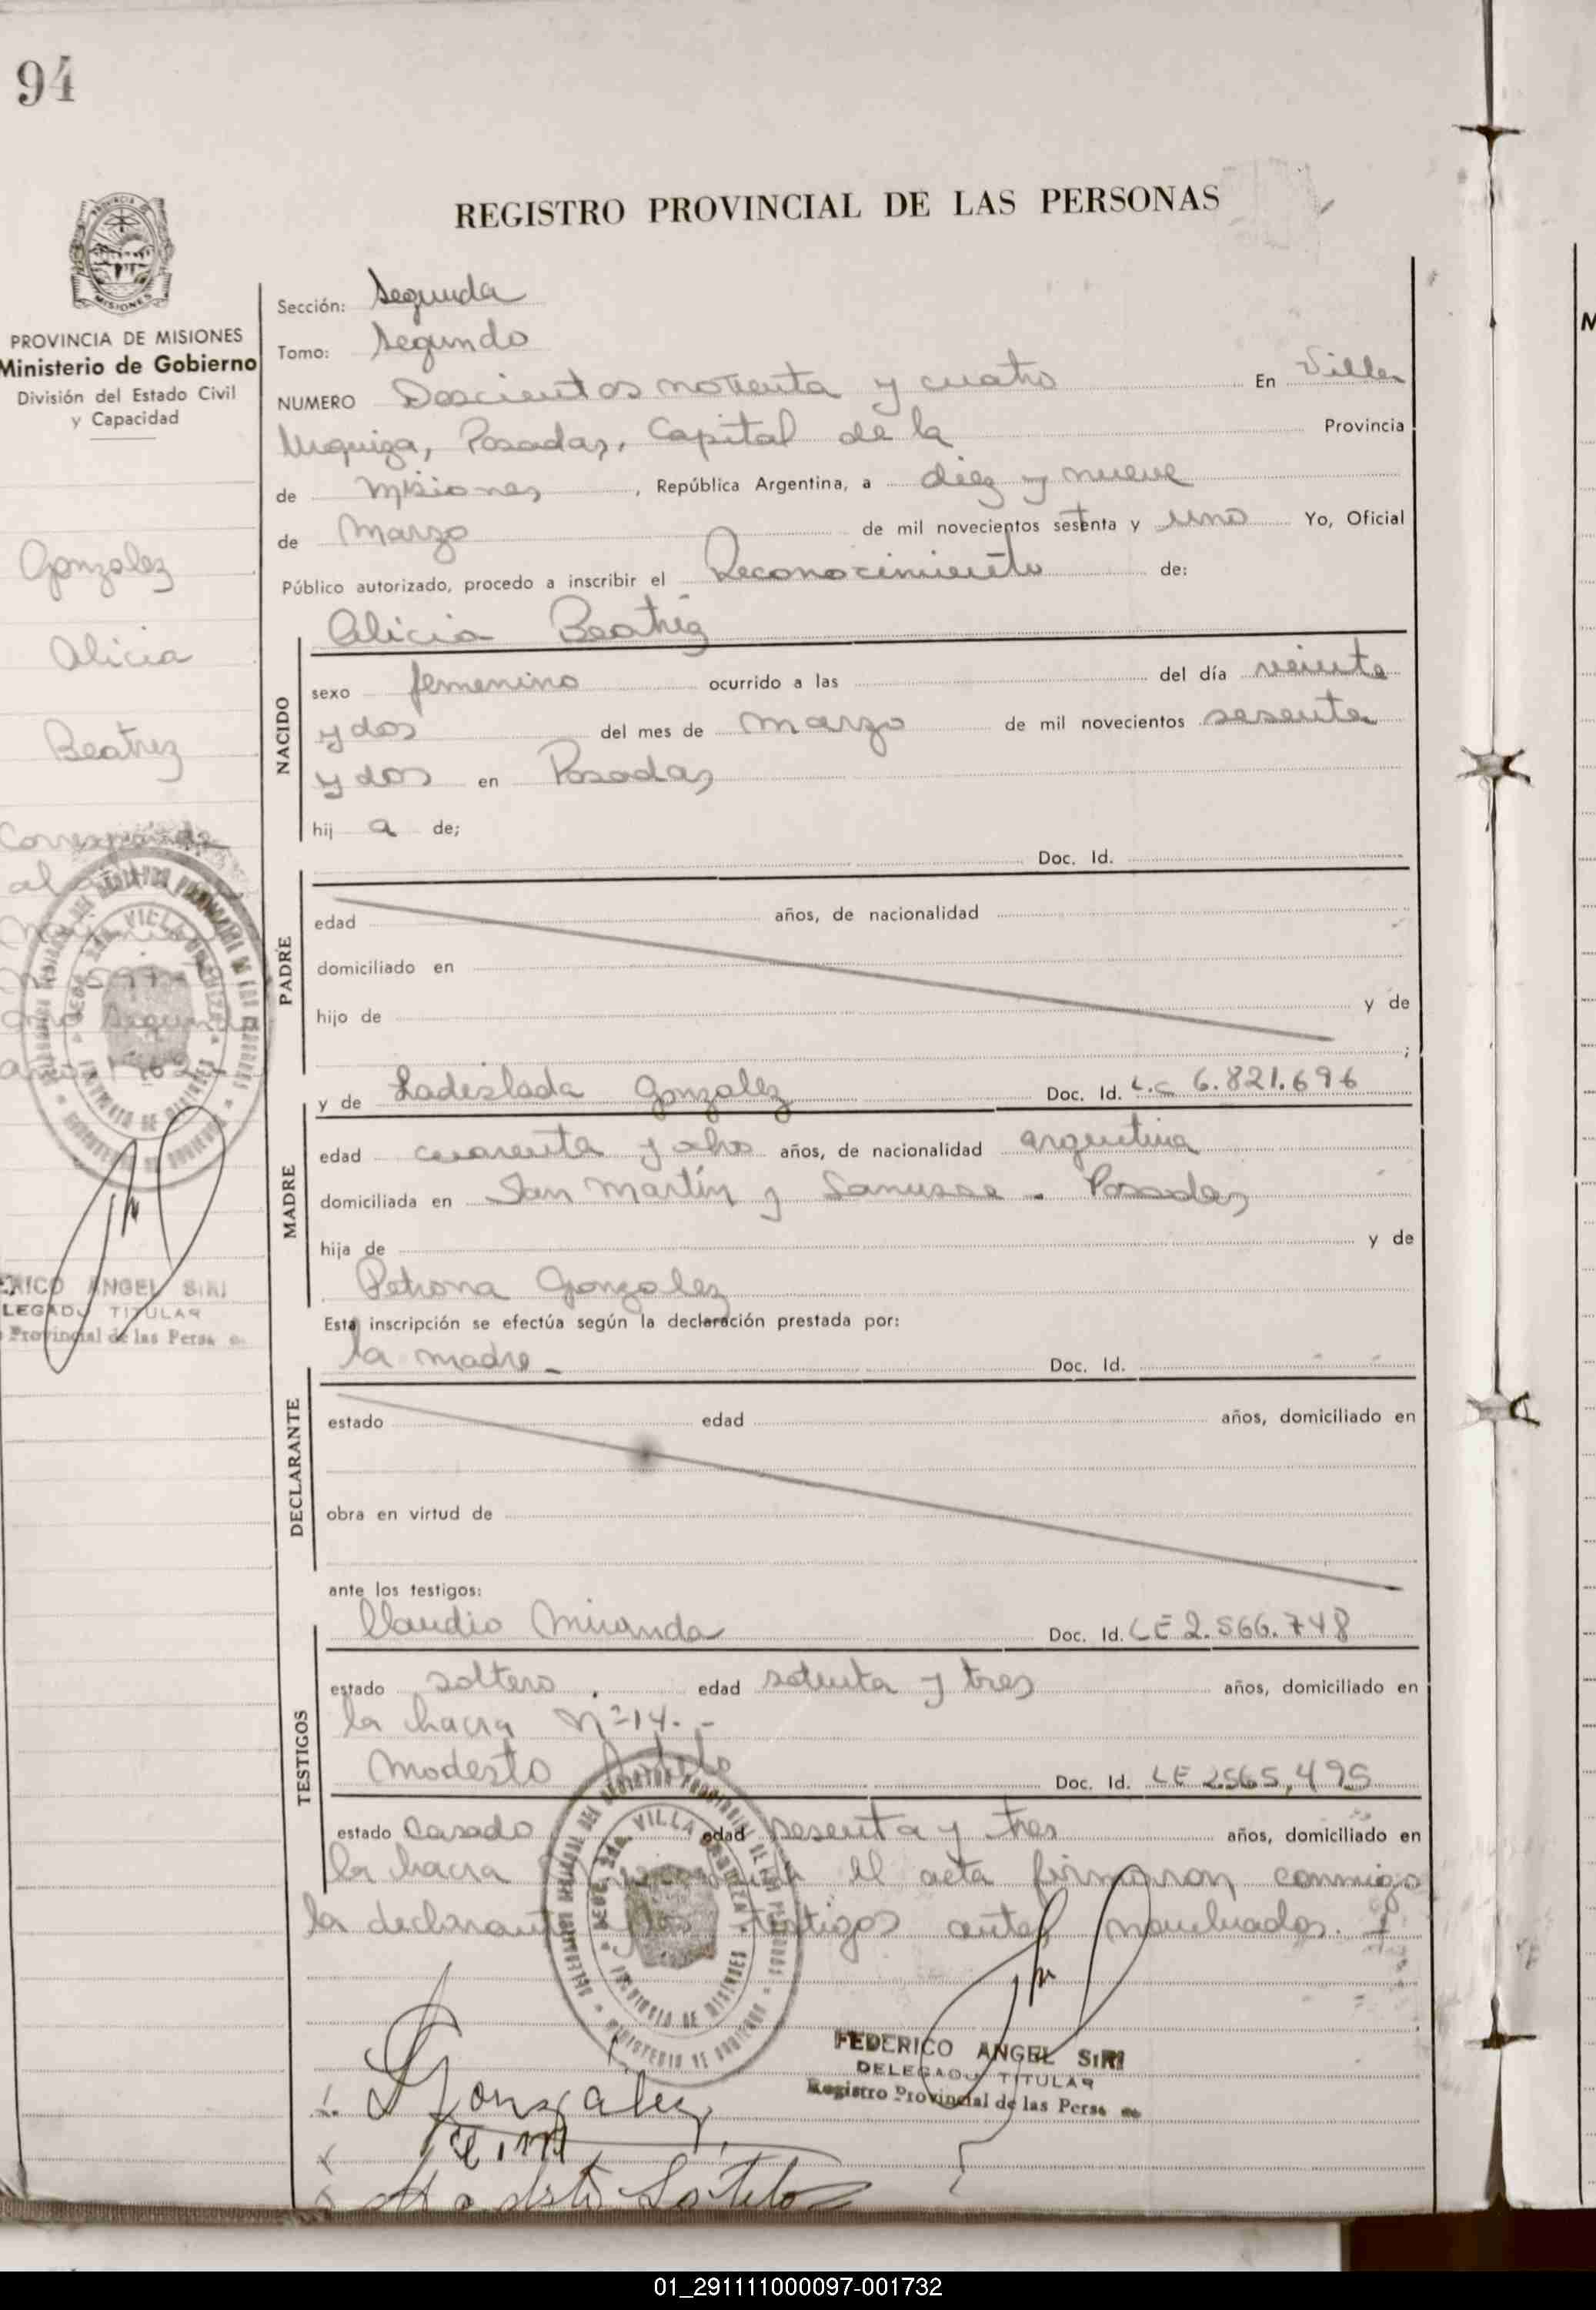 94
REGISTRO PROVINCIAL DE LAS PERSONAS
MISIONES
PROVINCIA DE MISIONES
Ministerio de Gobierno
División del Estado Civil
y Capacidad
Gonzalez
Alicia
Beatriz
Corresponde
al
Sección: Segunda
Tomo: Segundo
NUMERO Doscientos noventa y cuatro En Villa
Urquiza, Posadas, Capital de la Provincia
de Misiones, República Argentina, a diez y nueve
de Marzo de mil novecientos sesenta y uno Yo, Oficial
Público autorizado, procedo a inscribir el Reconocimiento de:
Alicia Beatriz
NACIDO
sexo femenino ocurrido a las del día veinte
y dos del mes de marzo de mil novecientos sesenta
y dos en Posadas
hij a de;
Doc. Id.
PADRE
edad años, de nacionalidad
domiciliado en
hijo de y de
;
y de Ladislada Gonzalez Doc. Id. L.C 6.821.696
MADRE
edad cuarenta y ocho años, de nacionalidad argentina
domiciliada en San Martín y Lanusse - Posadas
hija de y de
Petrona Gonzalez
Esta inscripción se efectúa según la declaración prestada por:
la madre - Doc. Id.
DECLARANTE
estado edad años, domiciliado en
obra en virtud de
ante los testigos:
Claudio Miranda Doc. Id. LE 2.566.748
TESTIGOS
estado soltero. edad setenta y tres años, domiciliado en
la chacra Nº 14. -
Modesto Sotelo Doc. Id. LE 2565,495
estado Casado edad sesenta y tres años, domiciliado en
la chacra el acta firmaron conmigo
la declarante y los testigos antes nombrados.
FEDERICO ANGEL SIRI
DELEGADO TITULAR
Registro Provincial de las Perso
Gonzalez
Modesto Sotelo
ERICO ANGEL SIRI
LEGADO TITULAR
Provincial de las Perso
01_291111000097-001732